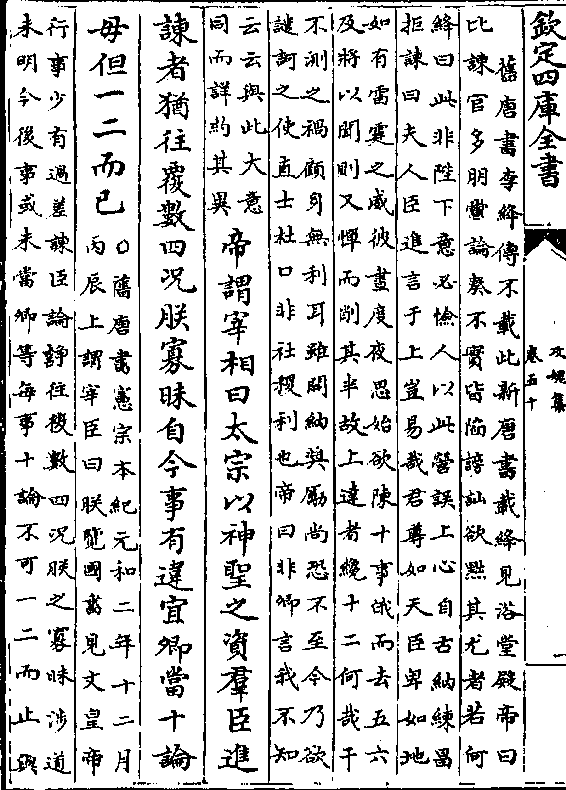 欽定四庫全書
攻媿集
卷五十
一
舊唐書李絳傳不載此新唐書載絳見浴堂殿帝曰
比諫官多朋黨論奏不實皆陷謗訕欲黜其尤者若何
絳曰此非陛下意必憸人以此營誤上心自古納諫昌
拒諫曰夫人臣進言于上豈易哉君尊如天臣卑如地
如有雷霆之威彼晝度夜思始欲陳十事俄而去五六
及將以聞則又憚而削其半故上達者纔十二何哉干
不測之禍顧身無利耳雖開納奬勵尚恐不至今乃欲
譴訶之使直士杜口非社稷利也帝曰非卿言我不知
云云與此大意
同而詳約其異
帝謂宰相曰太宗以神聖之資羣臣進
諫者猶往覆數四况朕寡昧自今事有違宜卿當十論
毋但一二而已
○舊唐書憲宗本紀元和二年十二月
丙辰上謂宰臣曰朕覽國書見文皇帝
行事少有過差諫臣論諍往復數四况朕之寡昧涉道
未明今後事或未當卿等每事十論不可一二而止與